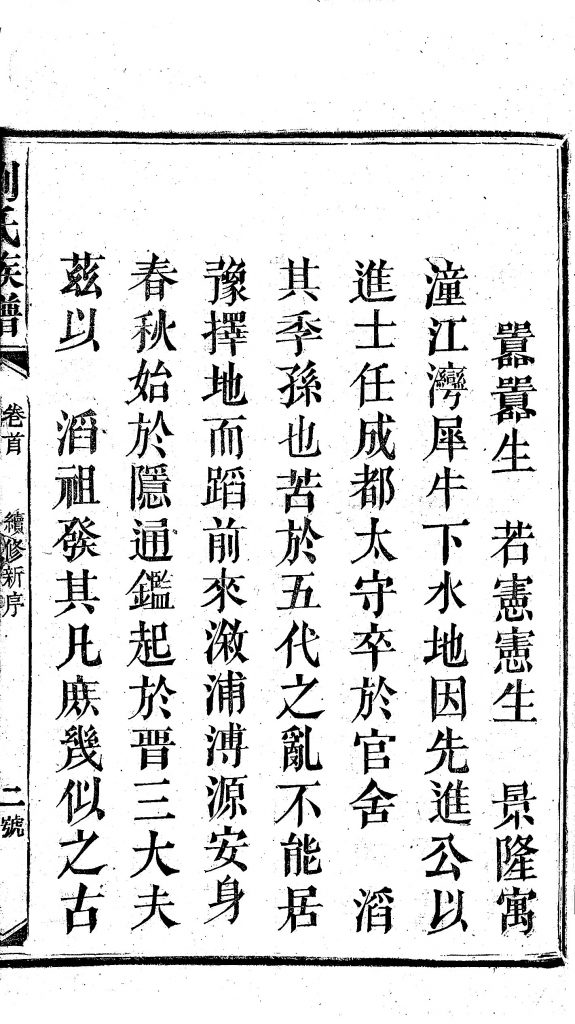 嚚嚚生　若憲憲生　景隆寓
潼江灣犀牛下水地因先進公以
進士任成都太守卒於官舍　滔
其季孫也苦於五代之亂不能居
豫擇地而蹈前來漵浦溥源安身
春秋始於隱通鑑起於晉三大夫
茲以　滔祖發其凡庶幾似之古
劉氏族譜
卷首　續修新序
二號